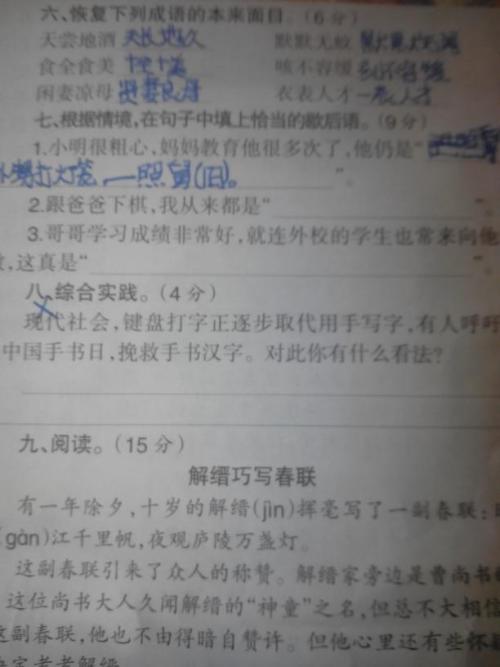 六、恢复下列成语的本来面目。(6分)
天尝地酒 天长地久 默默无蚊
食全食美 十全十美 咳不容缓 刻不容缓
闲妻凉母 贤妻良母 衣表人才 一表人才
七、根据情境,在句子中填上恰当的歇后语。(9分)
1.小明很粗心,妈妈教育他很多次了,他仍是“
外甥打灯笼,一照舅(旧)。”。
2.跟爸爸下棋,我从来都是“ ”。
3.哥哥学习成绩非常好,就连外校的学生也常来向他
,这真是“ ”。
八、综合实践。(4分)
现代社会,键盘打字正逐步取代用手写字,有人呼吁
中国手书日,挽救手书汉字。对此你有什么看法?
九、阅读。(15分)
解缙巧写春联
有一年除夕,十岁的解缙(jìn)挥毫写了一副春联:
(gàn)江千里帆,夜观庐陵万盏灯。
这副春联引来了众人的称赞。解缙家旁边是曹尚书
这位尚书大人久闻解缙的“神童”之名,但总不大相信
这副春联,他也不由得暗自赞许。但他心里还有些怀
考考解缙